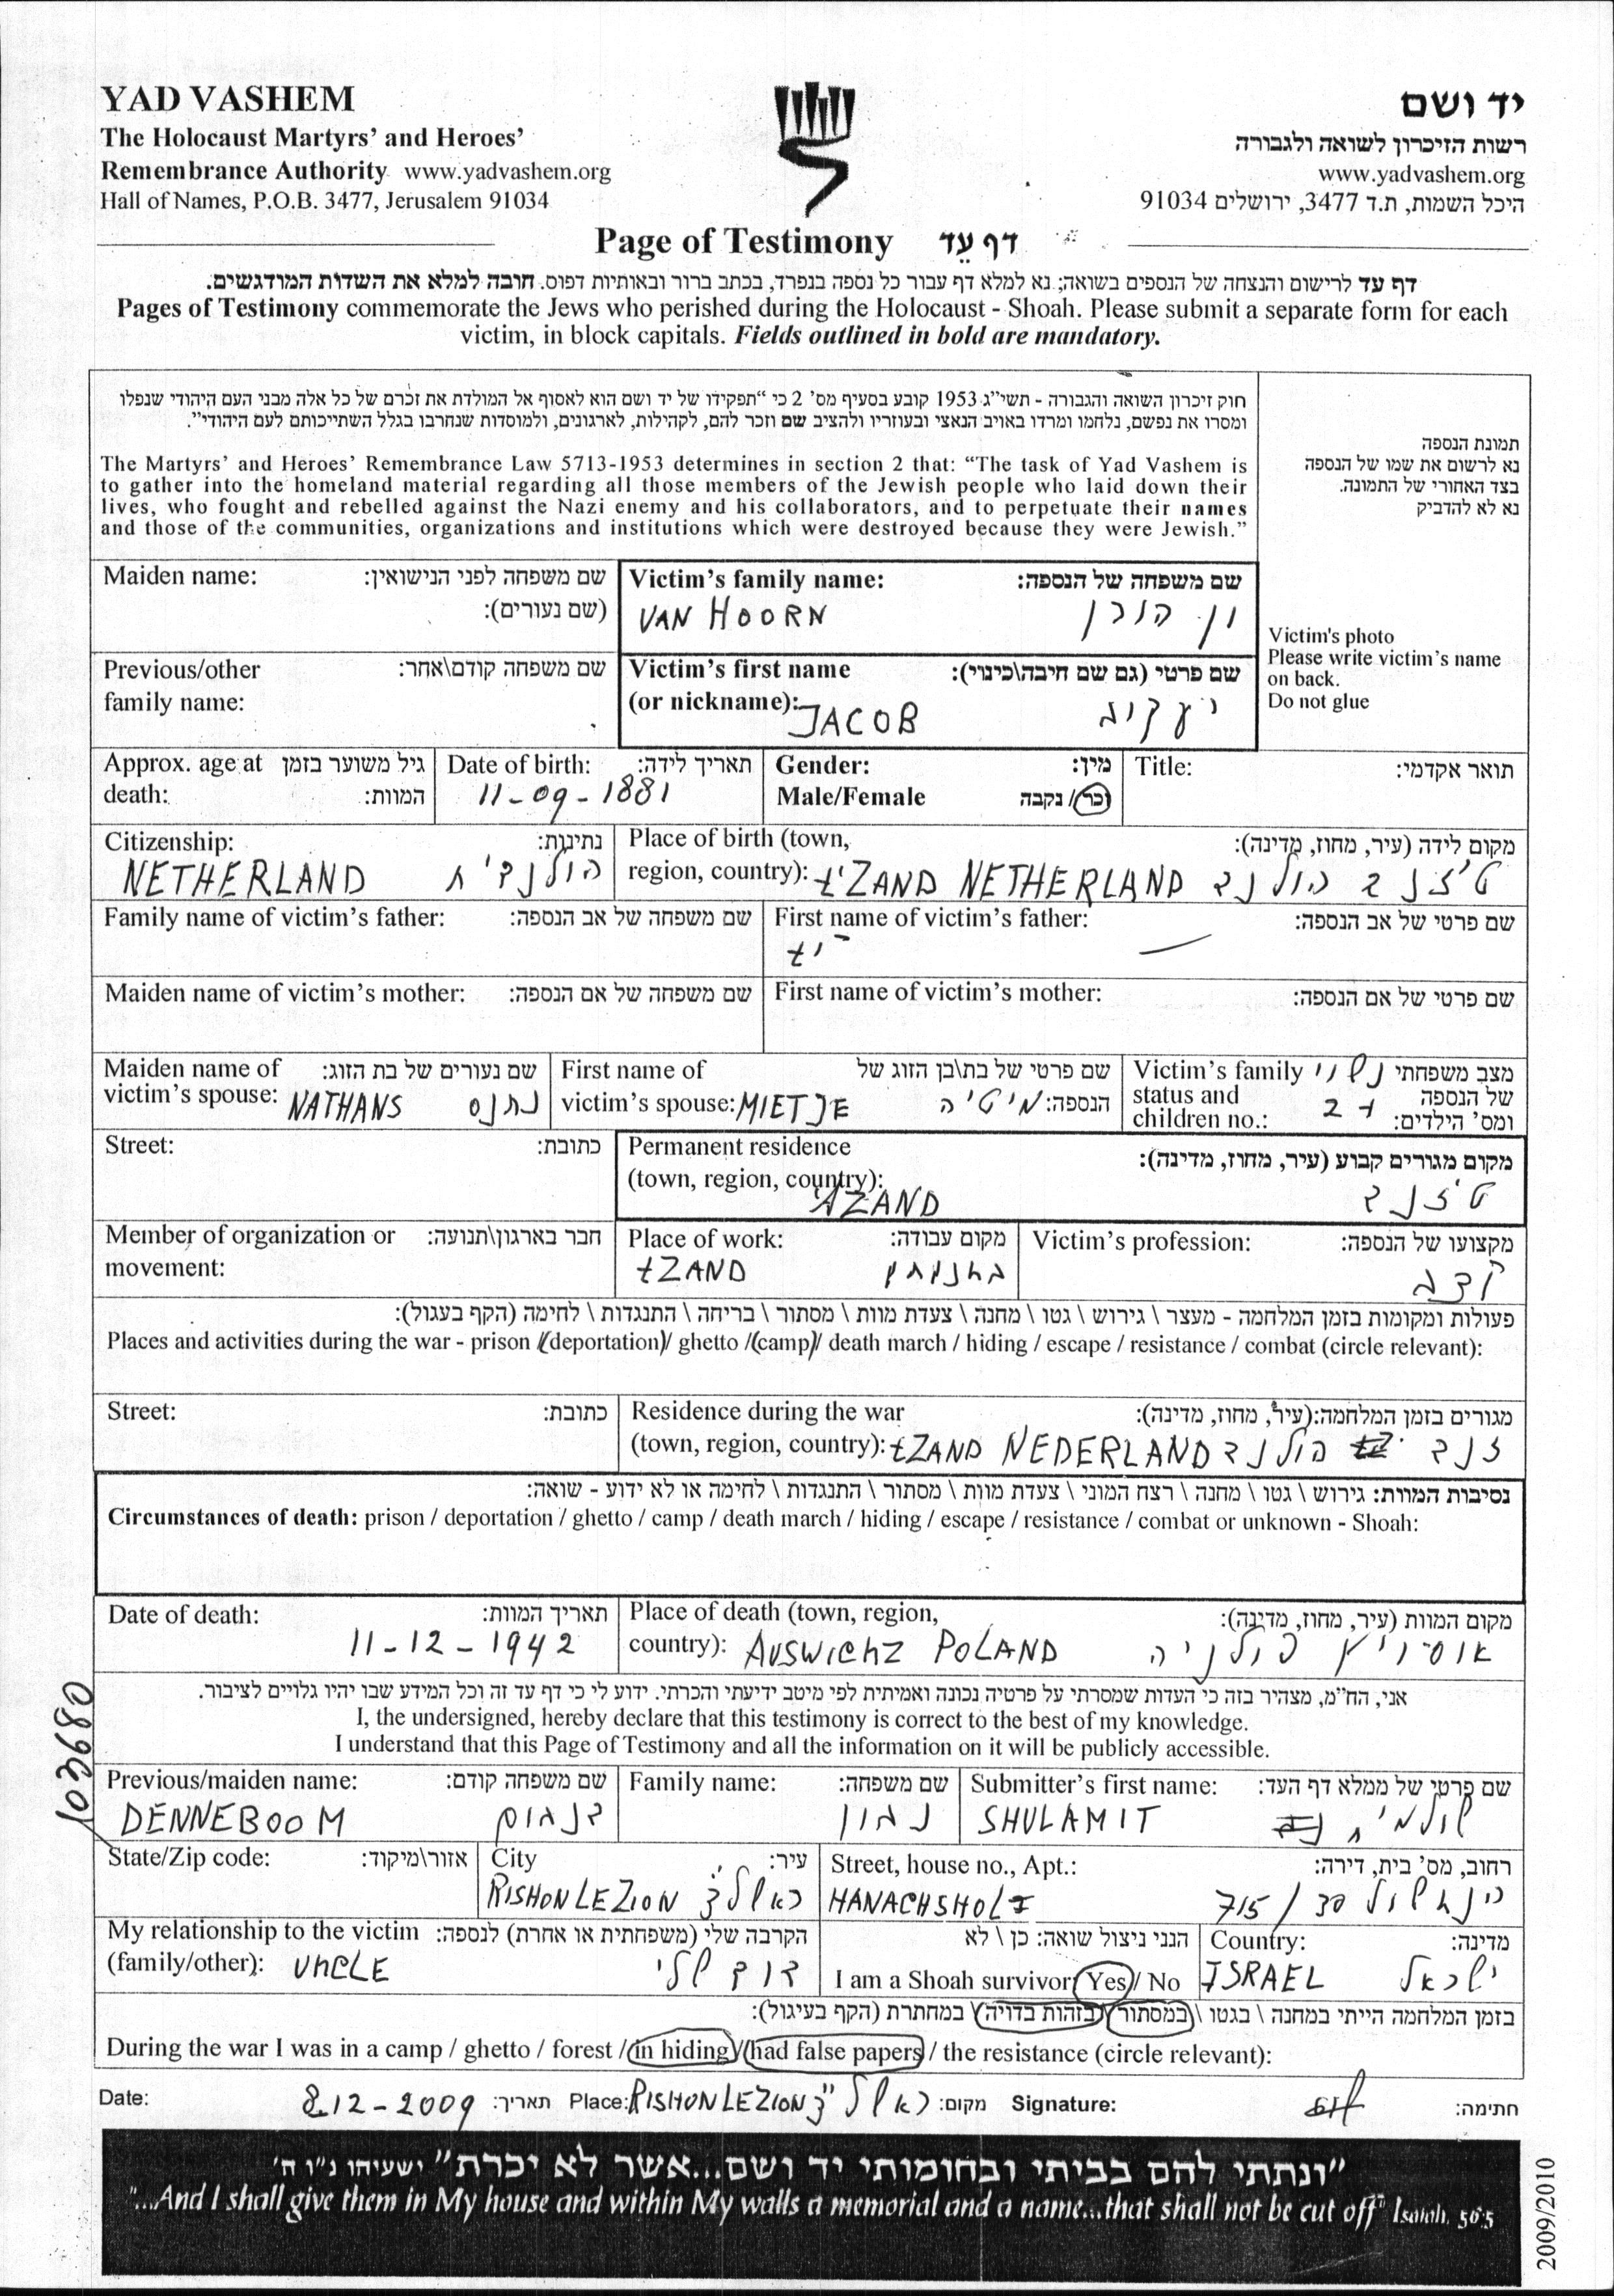 YAD VASHEM
The Holocaust Martyrs' and Heroes'
Remembrance Authority www.yadvashem.org
Hall of Names, P.O.B. 3477, Jerusalem 91034
יד ושם
רשות הזיכרון לשואה ולגבורה
www.yadvashem.org
היכל השמות, ת.ד 3477, ירושלים 91034
Page of Testimony דף עֵד
דף עד לרישום והנצחה של הנספים בשואה; נא למלא דף עבור כל נספה בנפרד, בכתב ברור ובאותיות דפוס. חובה למלא את השדות המודגשים.
Pages of Testimony commemorate the Jews who perished during the Holocaust - Shoah. Please submit a separate form for each
victim, in block capitals. Fields outlined in bold are mandatory.
חוק זיכרון השואה והגבורה - תשי"ג 1953 קובע בסעיף מס' 2 כי "תפקידו של יד ושם הוא לאסוף אל המולדת את זכרם של כל אלה מבני העם היהודי שנפלו
ומסרו את נפשם, נלחמו ומרדו באויב הנאצי ובעוזריו ולהציב שם וזכר להם, לקהילות, לארגונים, ולמוסדות שנחרבו בגלל השתייכותם לעם היהודי".
The Martyrs' and Heroes' Remembrance Law 5713-1953 determines in section 2 that: "The task of Yad Vashem is
to gather into the homeland material regarding all those members of the Jewish people who laid down their
lives, who fought and rebelled against the Nazi enemy and his collaborators, and to perpetuate their names
and those of the communities, organizations and institutions which were destroyed because they were Jewish."
תמונת הנספה
נא לרשום את שמו של הנספה
בצד האחורי של התמונה.
נא לא להדביק
Victim's photo
Please write victim's name
on back.
Do not glue
Maiden name: שם משפחה לפני הנישואין:
(שם נעורים):
Victim's family name: שם משפחה של הנספה:
VAN HOORN ון הורן
Previous/other שם משפחה קודם\אחר:
family name:
Victim's first name שם פרטי (גם שם חיבה\כינוי):
(or nickname): JACOB יעקוב
Approx. age at גיל משוער בזמן
death: המוות:
Date of birth: תאריך לידה:
11-09-1881
Gender: מין:
Male/Female זכר/נקבה
Title: תואר אקדמי:
Citizenship: נתינות:
NETHERLAND הולנדית
Place of birth (town, מקום לידה (עיר, מחוז, מדינה):
region, country): t'ZAND NETHERLAND ט'זנד הולנד
Family name of victim's father: שם משפחה של אב הנספה:
First name of victim's father: שם פרטי של אב הנספה:
Maiden name of victim's mother: שם משפחה של אם הנספה:
First name of victim's mother: שם פרטי של אם הנספה:
Maiden name of שם נעורים של בת הזוג:
victim's spouse: NATHANS נתנס
First name of שם פרטי של בת\בן הזוג של
victim's spouse: MIETJE הנספה: מיטיה
Victim's family מצב משפחתי נשוי
status and של הנספה
children no.: ומס' הילדים: + 2
Street: כתובת:
Permanent residence מקום מגורים קבוע (עיר, מחוז, מדינה):
(town, region, country):
ZAND ט'זנד
Member of organization or חבר בארגון\תנועה:
movement:
Place of work: מקום עבודה:
tZAND
Victim's profession: מקצועו של הנספה:
קצב
פעולות ומקומות בזמן המלחמה - מעצר \ גירוש \ גטו \ מחנה \ צעדת מוות \ מסתור \ בריחה \ התנגדות \ לחימה (הקף בעגול):
Places and activities during the war - prison / (deportation) / ghetto / (camp) / death march / hiding / escape / resistance / combat (circle relevant):
Street: כתובת:
Residence during the war מגורים בזמן המלחמה:(עיר, מחוז, מדינה):
(town, region, country): tZAND NEDERLAND זנד הולנד
נסיבות המוות: גירוש \ גטו \ מחנה \ רצח המוני \ צעדת מוות \ מסתור \ התנגדות \ לחימה או לא ידוע - שואה:
Circumstances of death: prison / deportation / ghetto / camp / death march / hiding / escape / resistance / combat or unknown - Shoah:
Date of death: תאריך המוות:
11-12-1942
Place of death (town, region, מקום המוות (עיר, מחוז, מדינה):
country): AUSWICHZ POLAND אוסויץ פולניה
אני, הח"מ, מצהיר בזה כי העדות שמסרתי על פרטיה נכונה ואמיתית לפי מיטב ידיעתי והכרתי. ידוע לי כי דף עד זה וכל המידע שבו יהיו גלויים לציבור.
I, the undersigned, hereby declare that this testimony is correct to the best of my knowledge.
I understand that this Page of Testimony and all the information on it will be publicly accessible.
103680
Previous/maiden name: שם משפחה קודם:
DENNEBOOM דנבום
Family name: שם משפחה:
נבון
Submitter's first name: שם פרטי של ממלא דף העד:
SHULAMIT שולמית
State/Zip code: אזור\מיקוד:
City עיר:
RISHON LEZION ראשלצ
Street, house no., Apt.: רחוב, מס' בית, דירה:
HANACHSHOL 7 הנחשול 30 / 715
My relationship to the victim הקרבה שלי (משפחתית או אחרת) לנספה:
(family/other): UNCLE דוד שלי
הנני ניצול שואה: כן \ לא
I am a Shoah survivor: Yes / No
Country: מדינה:
ISRAEL ישראל
בזמן המלחמה הייתי במחנה \ בגטו \ במסתור \ בזהות בדויה \ במחתרת (הקף בעיגול):
During the war I was in a camp / ghetto / forest / in hiding / had false papers / the resistance (circle relevant):
Date: 8.12-2009 תאריך: Place: RISHON LEZION ראשל"צ מקום: Signature: חתימה:
"ונתתי להם בביתי ובחומותי יד ושם...אשר לא יכרת" ישעיהו נ"ו ה'
"...And I shall give them in My house and within My walls a memorial and a name...that shall not be cut off" Isaiah, 56:5
2009/2010